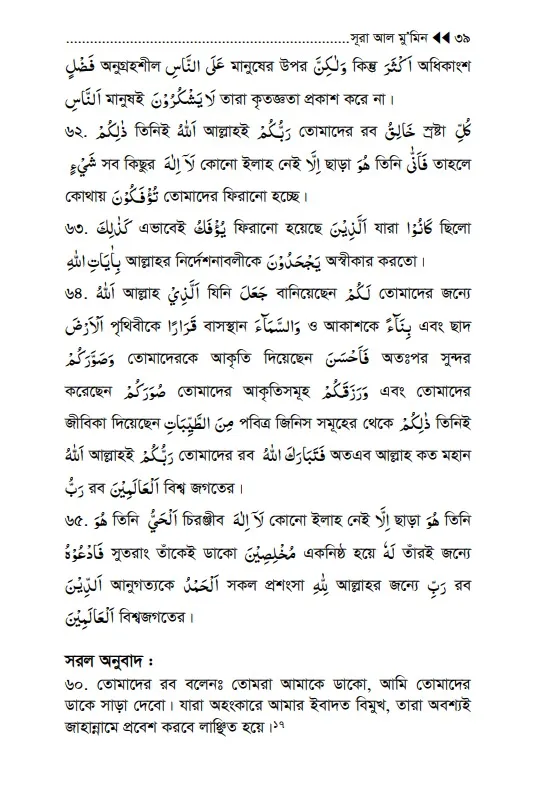 .......................................................................সূরা আল মু'মিন ◀◀ ৩৯
فَضْلٍ অনুগ্রহশীল عَلَى النَّاسِ মানুষের উপর وَلٰكِنَّ কিন্তু اَكْثَرَ অধিকাংশ
النَّاسِ মানুষই لَا يَشْكُرُوْنَ তারা কৃতজ্ঞতা প্রকাশ করে না।
৬২. ذٰلِكُمْ তিনিই اَللّٰهُ আল্লাহই رَبُّكُمْ তোমাদের রব خَالِقُ স্রষ্টা كُلِّ
شَيْءٍ সব কিছুর لَآ اِلٰهَ কোনো ইলাহ নেই اِلَّا ছাড়া هُوَ তিনি فَاَنّٰى তাহলে
কোথায় تُؤْفَكُوْنَ তোমাদের ফিরানো হচ্ছে।
৬৩. كَذٰلِكَ এভাবেই يُؤْفَكُ ফিরানো হয়েছে الَّذِيْنَ যারা كَانُوْا ছিলো
بِاٰيَاتِ اللهِ আল্লাহর নির্দেশনাবলীকে يَجْحَدُوْنَ অস্বীকার করতো।
৬৪. اَللّٰهُ আল্লাহ الَّذِيْ যিনি جَعَلَ বানিয়েছেন لَكُمْ তোমাদের জন্যে
الْاَرْضَ পৃথিবীকে قَرَارًا বাসস্থান وَالسَّمَآءَ ও আকাশকে بِنَآءً এবং ছাদ
وَصَوَّرَكُمْ তোমাদেরকে আকৃতি দিয়েছেন فَاَحْسَنَ অতঃপর সুন্দর
করেছেন صُوَرَكُمْ তোমাদের আকৃতিসমূহ وَرَزَقَكُمْ এবং তোমাদের
জীবিকা দিয়েছেন مِنَ الطَّيِّبَاتِ পবিত্র জিনিস সমূহের থেকে ذٰلِكُمْ তিনিই
اَللّٰهُ আল্লাহই رَبُّكُمْ তোমাদের রব فَتَبَارَكَ اللهُ অতএব আল্লাহ কত মহান
رَبُّ রব الْعَالَمِيْنَ বিশ্ব জগতের।
৬৫. هُوَ তিনি الْحَيُّ চিরঞ্জীব لَآ اِلٰهَ কোনো ইলাহ নেই اِلَّا ছাড়া هُوَ তিনি
فَادْعُوْهُ সুতরাং তাঁকেই ডাকো مُخْلِصِيْنَ একনিষ্ঠ হয়ে لَهُ তাঁরই জন্যে
الدِّيْنَ আনুগত্যকে اَلْحَمْدُ সকল প্রশংসা لِلّٰهِ আল্লাহর জন্যে رَبِّ রব
الْعَالَمِيْنَ বিশ্বজগতের।
সরল অনুবাদ :
৬০. তোমাদের রব বলেনঃ তোমরা আমাকে ডাকো, আমি তোমাদের
ডাকে সাড়া দেবো। যারা অহংকারে আমার ইবাদত বিমুখ, তারা অবশ্যই
জাহান্নামে প্রবেশ করবে লাঞ্ছিত হয়ে।১৭